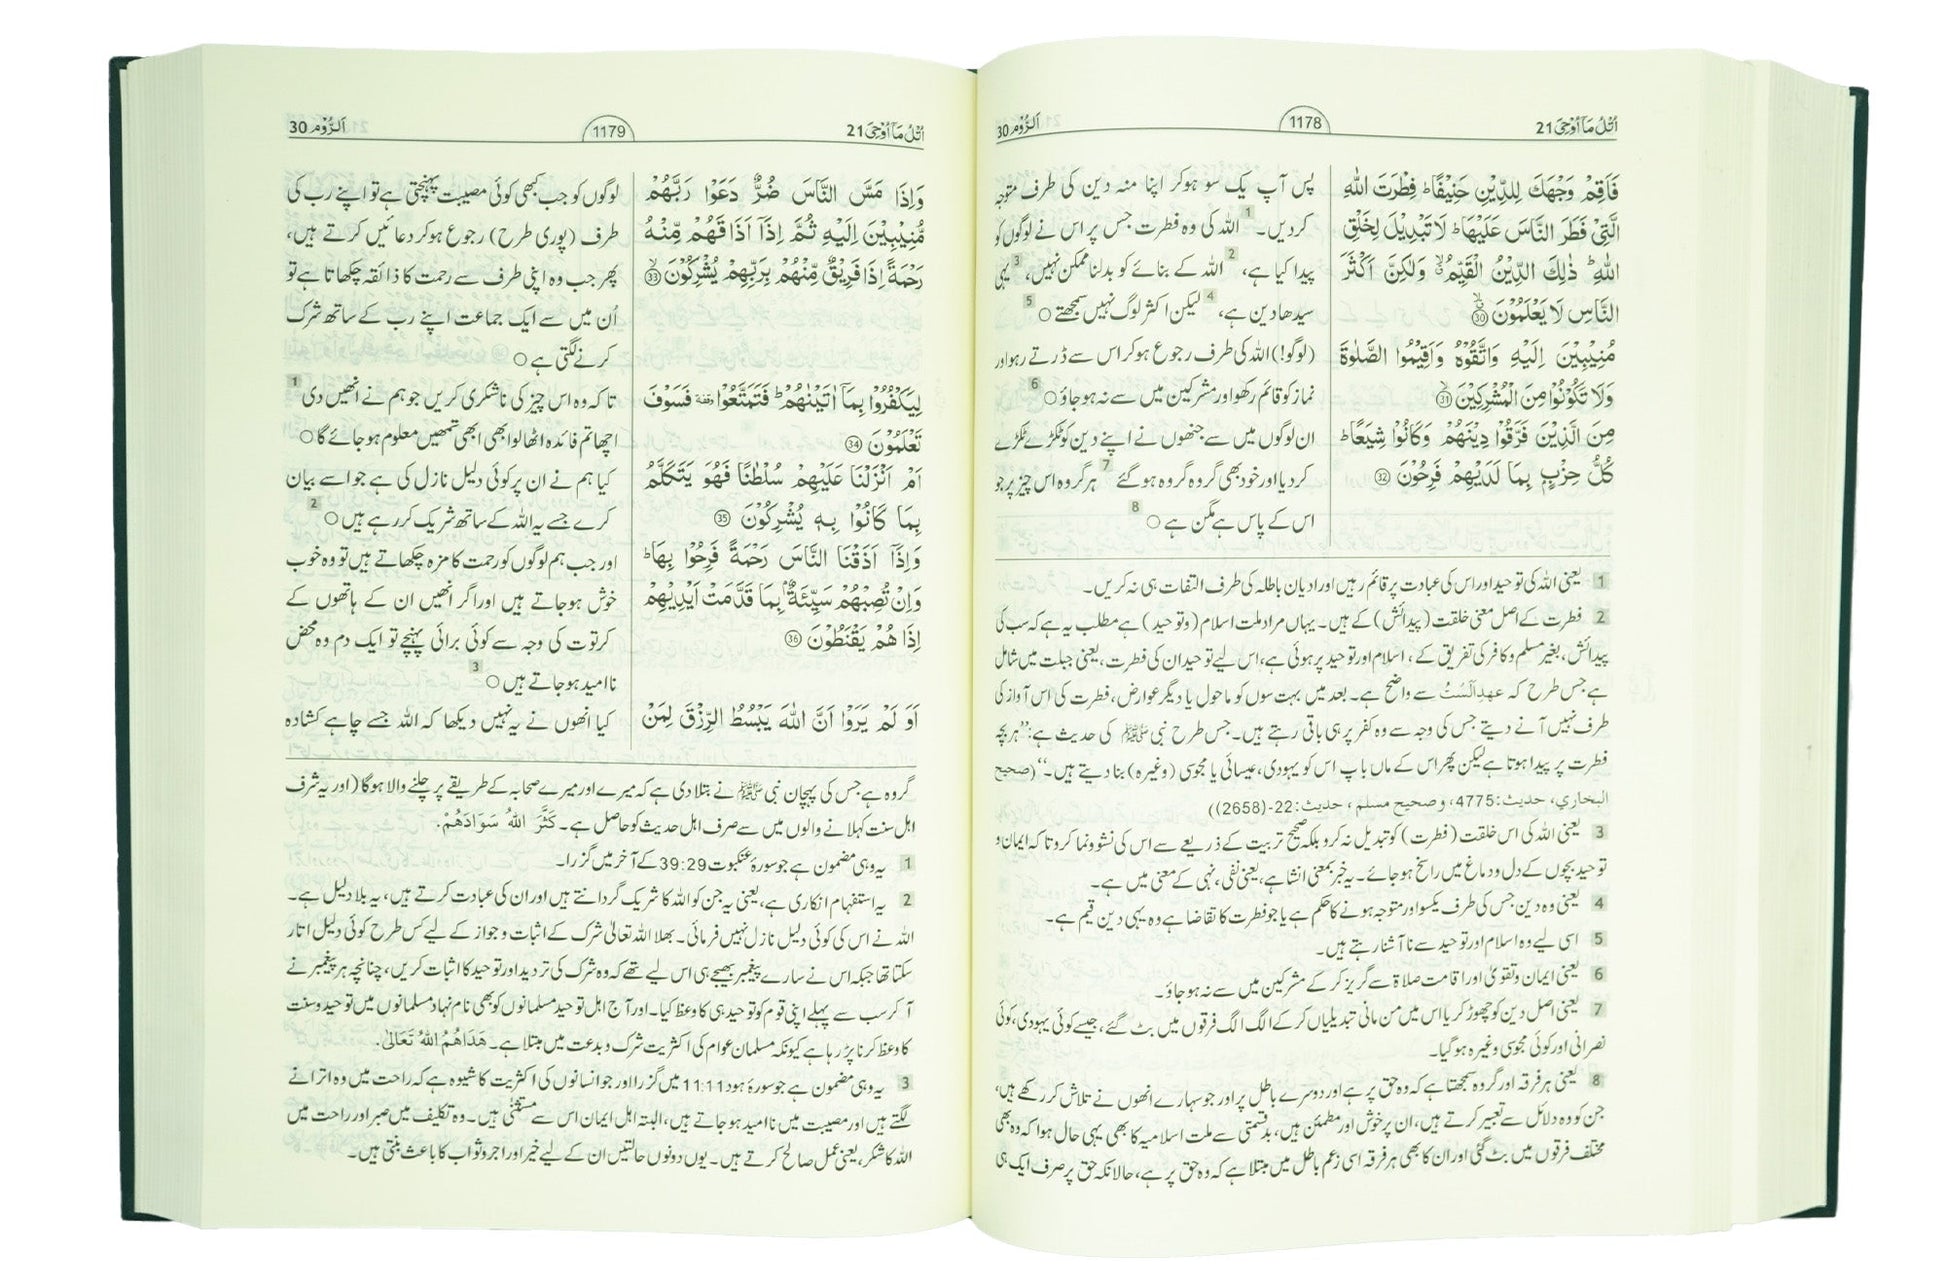 اُتْلُ مَاۤ اُوْحِیَ 21
1178
اَلرُّوْم 30
فَاَقِمْ وَجْهَكَ لِلدِّيْنِ حَنِيْفًا ؕ فِطْرَتَ اللّٰهِ
الَّتِيْ فَطَرَ النَّاسَ عَلَيْهَا ؕ لَا تَبْدِيْلَ لِخَلْقِ
اللّٰهِ ؕ ذٰلِكَ الدِّيْنُ الْقَيِّمُ ۙ وَلٰكِنَّ اَكْثَرَ
النَّاسِ لَا يَعْلَمُوْنَ ۙ 30
مُنِيْبِيْنَ اِلَيْهِ وَاتَّقُوْهُ وَاَقِيْمُوا الصَّلٰوةَ
وَلَا تَكُوْنُوْا مِنَ الْمُشْرِكِيْنَ ۙ 31
مِنَ الَّذِيْنَ فَرَّقُوْا دِيْنَهُمْ وَكَانُوْا شِيَعًا ؕ
كُلُّ حِزْبٍۭ بِمَا لَدَيْهِمْ فَرِحُوْنَ 32
پس آپ یک سو ہوکر اپنا منہ دین کی طرف متوجہ
کردیں۔ 1 اللہ کی وہ فطرت جس پر اس نے لوگوں کو
پیدا کیا ہے، 2 اللہ کے بنائے کو بدلنا ممکن نہیں، 3 یہی
سیدھا دین ہے، 4 لیکن اکثر لوگ نہیں سمجھتے ○ 5
(لوگو!) اللہ کی طرف رجوع ہوکر اس سے ڈرتے رہو اور
نماز کو قائم رکھو اور مشرکین میں سے نہ ہوجاؤ ○ 6
ان لوگوں میں سے جنھوں نے اپنے دین کو ٹکڑے ٹکڑے
کردیا اور خود بھی گروہ گروہ ہوگئے 7 ہر گروہ اس چیز پر جو
اس کے پاس ہے مگن ہے ○ 8
1 یعنی اللہ کی توحید اور اس کی عبادت پر قائم رہیں اور ادیان باطلہ کی طرف التفات ہی نہ کریں۔
2 فطرت کے اصل معنی خلقت (پیدائش) کے ہیں۔ یہاں مراد ملت اسلام (وتوحید) ہے مطلب یہ ہے کہ سب کی
پیدائش، بغیر مسلم و کافر کی تفریق کے، اسلام اور توحید پر ہوئی ہے، اس لیے توحید ان کی فطرت، یعنی جبلت میں شامل
ہے جس طرح کہ عہدِ اَلَسْتُ سے واضح ہے۔ بعد میں بہت سوں کو ماحول یا دیگر عوارض، فطرت کی اس آواز کی
طرف نہیں آنے دیتے جس کی وجہ سے وہ کفر پر ہی باقی رہتے ہیں۔ جس طرح نبی ﷺ کی حدیث ہے: ”ہر بچہ
فطرت پر پیدا ہوتا ہے لیکن پھر اس کے ماں باپ اس کو یہودی، عیسائی یا مجوسی (وغیرہ) بنا دیتے ہیں۔“ (صحیح
البخاري، حديث: 4775، وصحيح مسلم، حديث: 22-(2658))
3 یعنی اللہ کی اس خلقت (فطرت) کو تبدیل نہ کرو بلکہ صحیح تربیت کے ذریعے سے اس کی نشوونما کرو تاکہ ایمان و
توحید بچوں کے دل و دماغ میں راسخ ہوجائے۔ یہ خبر بمعنی انشا ہے، یعنی نفی، نہی کے معنی میں ہے۔
4 یعنی وہ دین جس کی طرف یکسو اور متوجہ ہونے کا حکم ہے یا جو فطرت کا تقاضا ہے وہ یہی دین قیم ہے۔
5 اسی لیے وہ اسلام اور توحید سے ناآشنا رہتے ہیں۔
6 یعنی ایمان و تقویٰ اور اقامت صلاۃ سے گریز کرکے مشرکین میں سے نہ ہوجاؤ۔
7 یعنی اصل دین کو چھوڑ کر یا اس میں من مانی تبدیلیاں کرکے الگ الگ فرقوں میں بٹ گئے، جیسے کوئی یہودی، کوئی
نصرانی اور کوئی مجوسی وغیرہ ہوگیا۔
8 یعنی ہر فرقہ اور گروہ سمجھتا ہے کہ وہ حق پر ہے اور دوسرے باطل پر اور جو سہارے انھوں نے تلاش کر رکھے ہیں،
جن کو وہ دلائل سے تعبیر کرتے ہیں، ان پر خوش اور مطمئن ہیں، بدقسمتی سے ملت اسلامیہ کا بھی یہی حال ہوا کہ وہ بھی
مختلف فرقوں میں بٹ گئی اور ان کا بھی ہر فرقہ اسی زعم باطل میں مبتلا ہے کہ وہ حق پر ہے، حالانکہ حق پر صرف ایک ہی
اُتْلُ مَاۤ اُوْحِیَ 21
1179
اَلرُّوْم 30
وَاِذَا مَسَّ النَّاسَ ضُرٌّ دَعَوْا رَبَّهُمْ
مُّنِيْبِيْنَ اِلَيْهِ ثُمَّ اِذَاۤ اَذَاقَهُمْ مِّنْهُ
رَحْمَةً اِذَا فَرِيْقٌ مِّنْهُمْ بِرَبِّهِمْ يُشْرِكُوْنَ ۙ 33
لِيَكْفُرُوْا بِمَاۤ اٰتَيْنٰهُمْ ؕ فَتَمَتَّعُوْا ۥ وقفة فَسَوْفَ
تَعْلَمُوْنَ 34
اَمْ اَنْزَلْنَا عَلَيْهِمْ سُلْطٰنًا فَهُوَ يَتَكَلَّمُ
بِمَا كَانُوْا بِهٖ يُشْرِكُوْنَ 35
وَاِذَاۤ اَذَقْنَا النَّاسَ رَحْمَةً فَرِحُوْا بِهَا ؕ
وَاِنْ تُصِبْهُمْ سَيِّئَةٌۢ بِمَا قَدَّمَتْ اَيْدِيْهِمْ
اِذَا هُمْ يَقْنَطُوْنَ 36
اَوَ لَمْ يَرَوْا اَنَّ اللّٰهَ يَبْسُطُ الرِّزْقَ لِمَنْ
لوگوں کو جب کبھی کوئی مصیبت پہنچتی ہے تو اپنے رب کی
طرف (پوری طرح) رجوع ہوکر دعائیں کرتے ہیں،
پھر جب وہ اپنی طرف سے رحمت کا ذائقہ چکھاتا ہے تو
اُن میں سے ایک جماعت اپنے رب کے ساتھ شرک
کرنے لگتی ہے ○
تاکہ وہ اس چیز کی ناشکری کریں جو ہم نے انھیں دی 1
اچھا تم فائدہ اٹھالو ابھی ابھی تمھیں معلوم ہوجائے گا ○
کیا ہم نے ان پر کوئی دلیل نازل کی ہے جو اسے بیان
کرے جسے یہ اللہ کے ساتھ شریک کر رہے ہیں ○ 2
اور جب ہم لوگوں کو رحمت کا مزہ چکھاتے ہیں تو وہ خوب
خوش ہوجاتے ہیں اور اگر انھیں ان کے ہاتھوں کے
کرتوت کی وجہ سے کوئی برائی پہنچے تو ایک دم وہ محض
ناامید ہوجاتے ہیں ○ 3
کیا انھوں نے یہ نہیں دیکھا کہ اللہ جسے چاہے کشادہ
گروہ ہے جس کی پہچان نبی ﷺ نے بتلا دی ہے کہ میرے اور میرے صحابہ کے طریقے پر چلنے والا ہوگا (اور یہ شرف
اہل سنت کہلانے والوں میں سے صرف اہل حدیث کو حاصل ہے۔ كَثَّرَ اللّٰهُ سَوَادَهُمْ.
1 یہ وہی مضمون ہے جو سورۂ عنکبوت 39:29 کے آخر میں گزرا۔
2 یہ استفہام انکاری ہے، یعنی یہ جن کو اللہ کا شریک گردانتے ہیں اور ان کی عبادت کرتے ہیں، یہ بلا دلیل ہے۔
اللہ نے اس کی کوئی دلیل نازل نہیں فرمائی۔ بھلا اللہ تعالیٰ شرک کے اثبات و جواز کے لیے کس طرح کوئی دلیل اتار
سکتا تھا جبکہ اس نے سارے پیغمبر بھیجے ہی اس لیے تھے کہ وہ شرک کی تردید اور توحید کا اثبات کریں، چنانچہ ہر پیغمبر نے
آکر سب سے پہلے اپنی قوم کو توحید ہی کا وعظ کیا۔ اور آج اہل توحید مسلمانوں کو بھی نام نہاد مسلمانوں میں توحید و سنت
کا وعظ کرنا پڑ رہا ہے کیونکہ مسلمان عوام کی اکثریت شرک و بدعت میں مبتلا ہے۔ هَدَاهُمُ اللّٰهُ تَعَالٰی.
3 یہ وہی مضمون ہے جو سورۂ ہود 11:11 میں گزرا اور جو انسانوں کی اکثریت کا شیوہ ہے کہ راحت میں وہ اترانے
لگتے ہیں اور مصیبت میں ناامید ہوجاتے ہیں، البتہ اہل ایمان اس سے مستثنیٰ ہیں۔ وہ تکلیف میں صبر اور راحت میں
اللہ کا شکر، یعنی عمل صالح کرتے ہیں۔ یوں دونوں حالتیں ان کے لیے خیر اور اجر و ثواب کا باعث بنتی ہیں۔